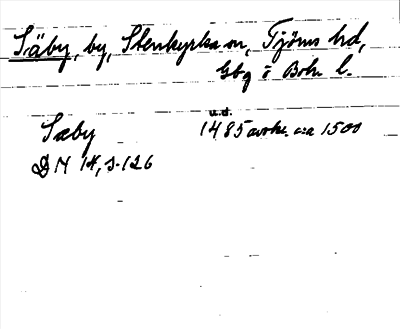 Säby, by, Stenkyrka sn, Tjörns hd,
Gbg o Boh. l.
u.d.
Sæby 1485 avskr. c:a 1500
DN 14, s. 126